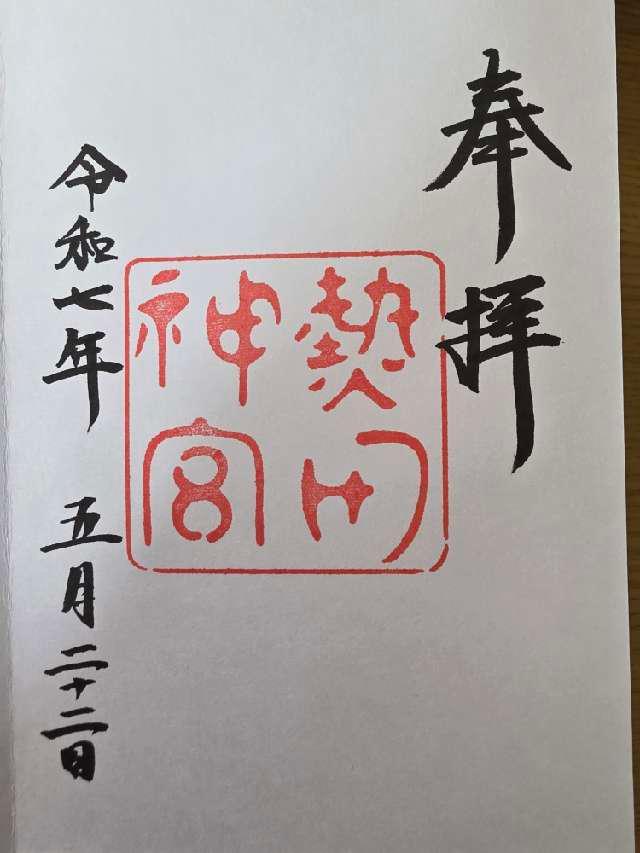 奉拝
熱田
神宮
令和七年 五月二十二日